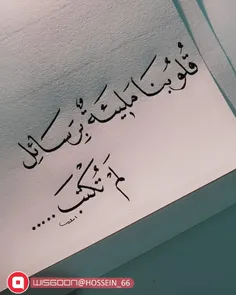 قُلُوبُنَا مَلِيئَة بِرَسَائِل
لَمْ تُكْتَبْ.....
WISGOON@HOSSEIN_66